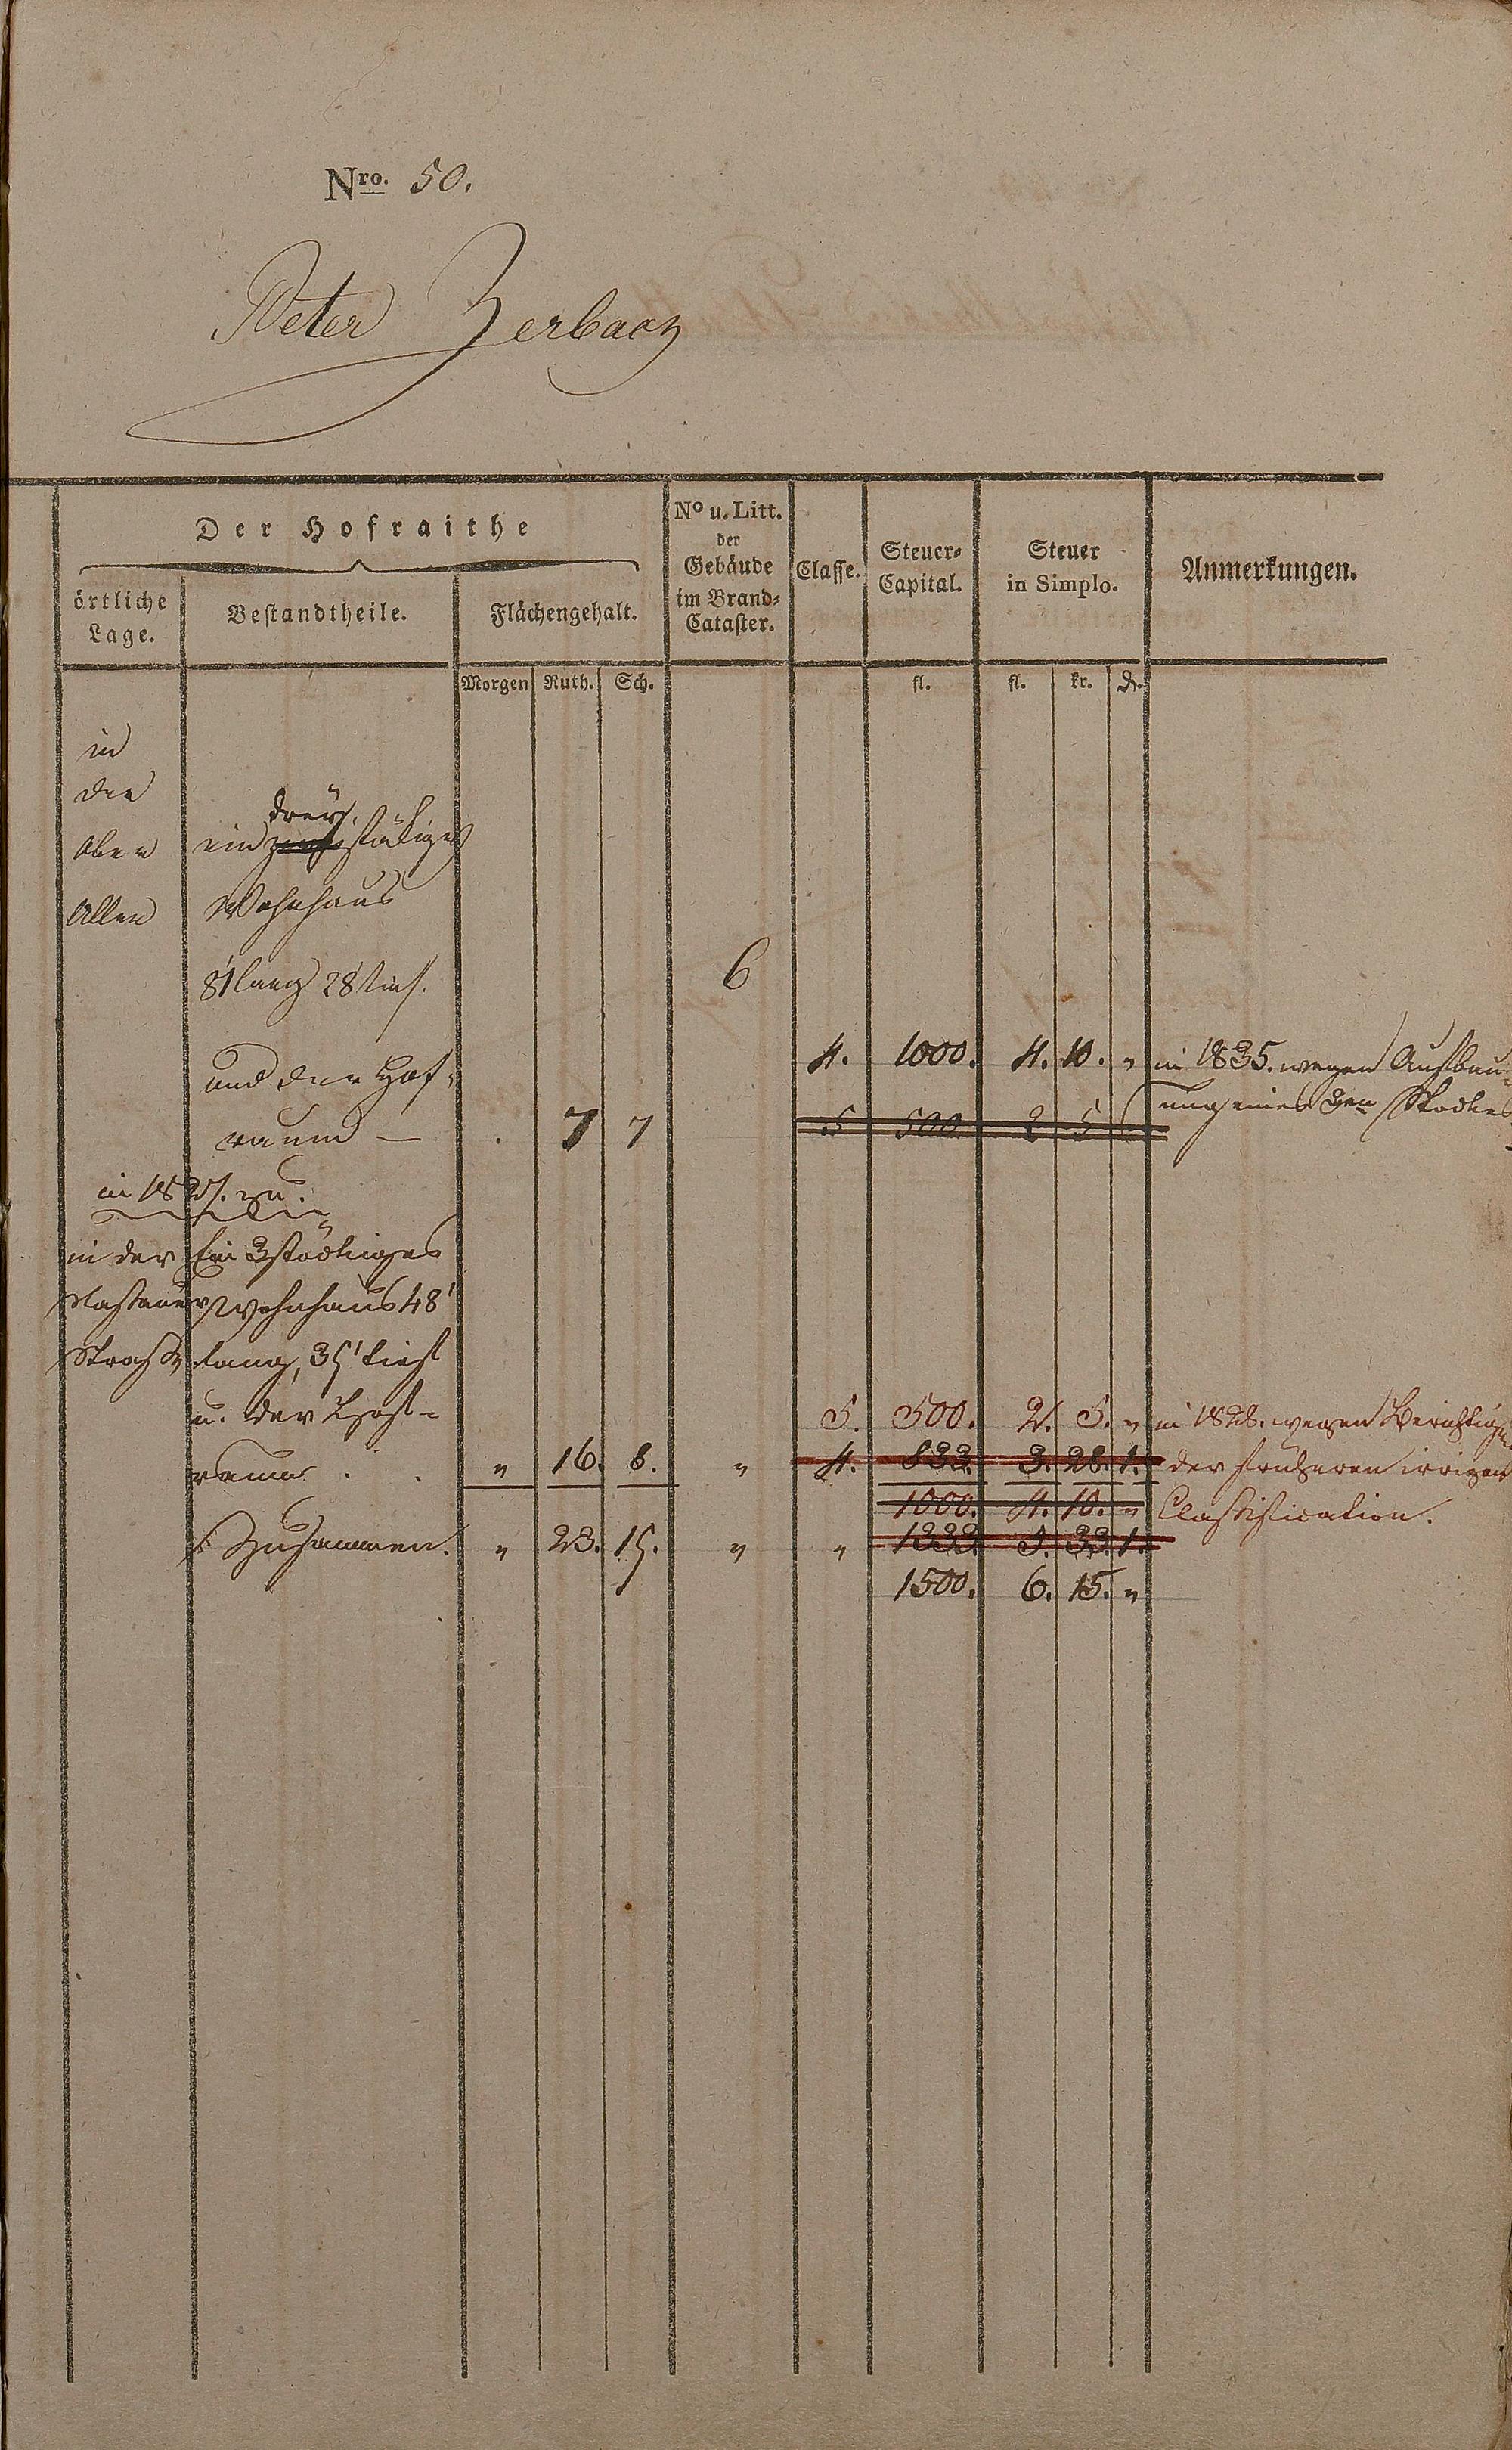 Nro. 50.
Peter Zerbach
Der Hofraithe
örtliche Lage.
Bestandtheile.
Flächengehalt.
No u. Litt. der Gebäude im Brand-Cataster.
Classe.
Steuer-Capital.
Steuer in Simplo.
Anmerkungen.
Morgen Ruth. Sch. fl. fl. kr.
in
der
drey
ober ein stökiges
Allee Wohnhaus
81 lang 28 tief. 6
und der Hof- 4. 1000. 4. 10. " in 1835. wegen Aufbau-
raum — . 7 7 5 500 2 5 ung eines 3en Stockes
in 182 zu.
in der Ein 3stöckiges
Nastauer Wohnhaus 48'
Straße lang, 35' tief
u. der Hof- 5. 500. 2. 5. " in 1828. wegen Berichtig
raum . . " 16. 8. " 4. 833. 3. 28. 1. der früheren irrigen
1000. 4. 10. " Classification.
Zusammen. " 23. 15. " " 1333. 5. 33. 1.
1500. 6. 15. "